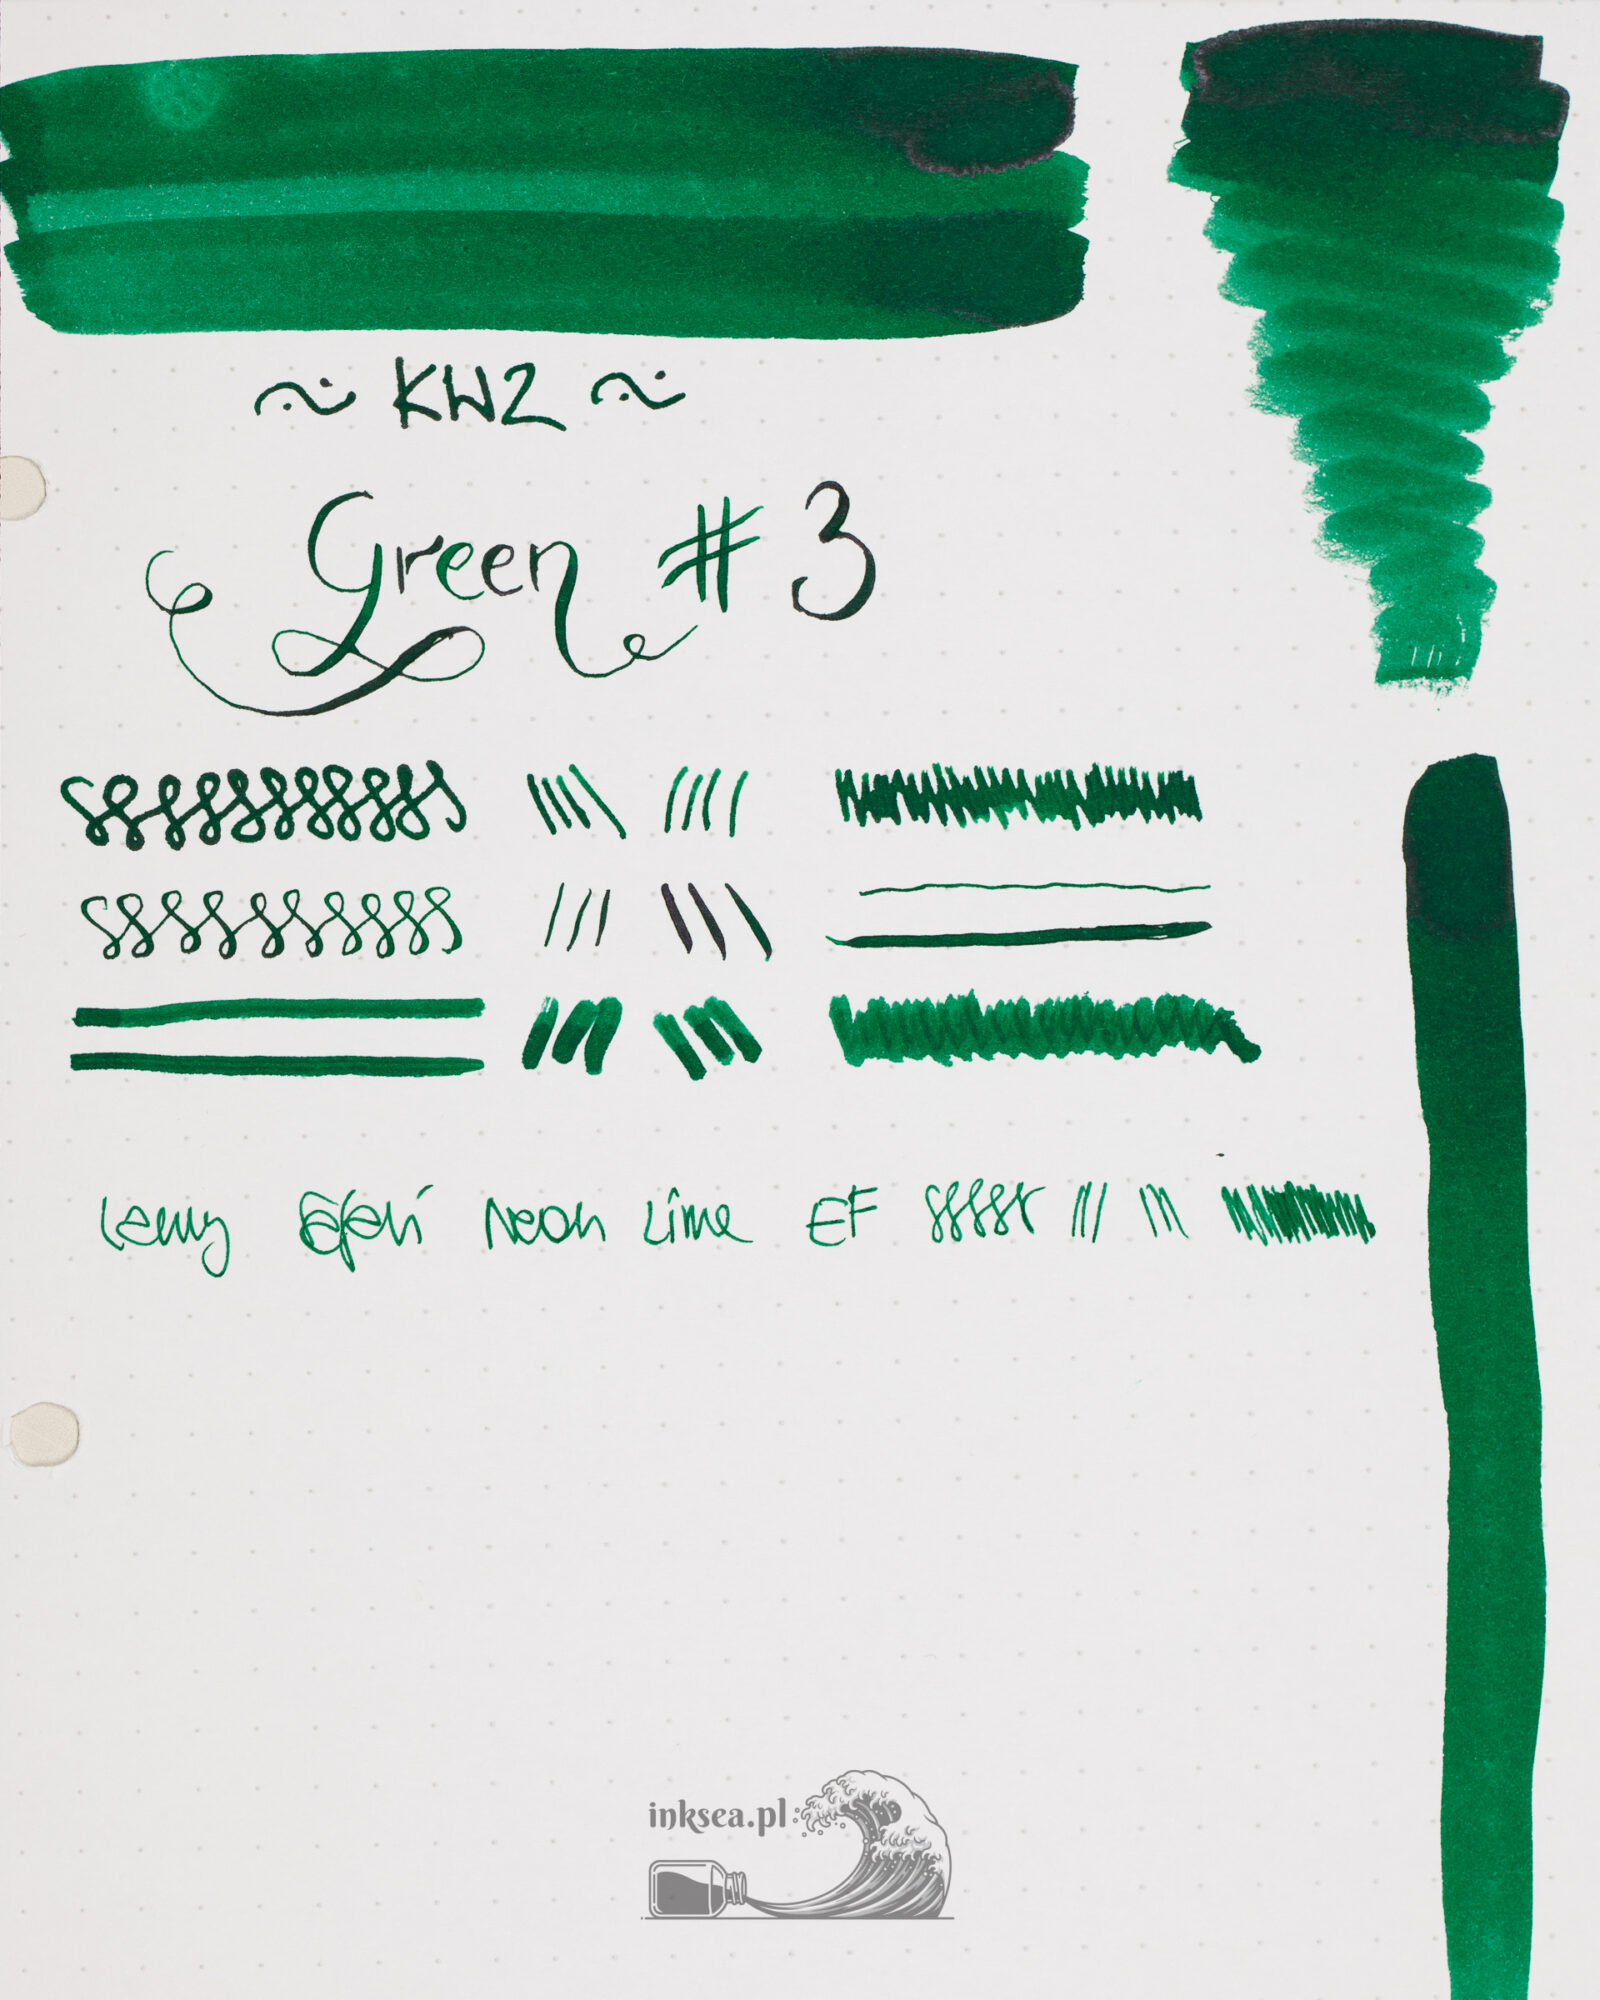 ~ KWZ ~
Green # 3
Lamy Safari Neon Lime EF
inksea.pl